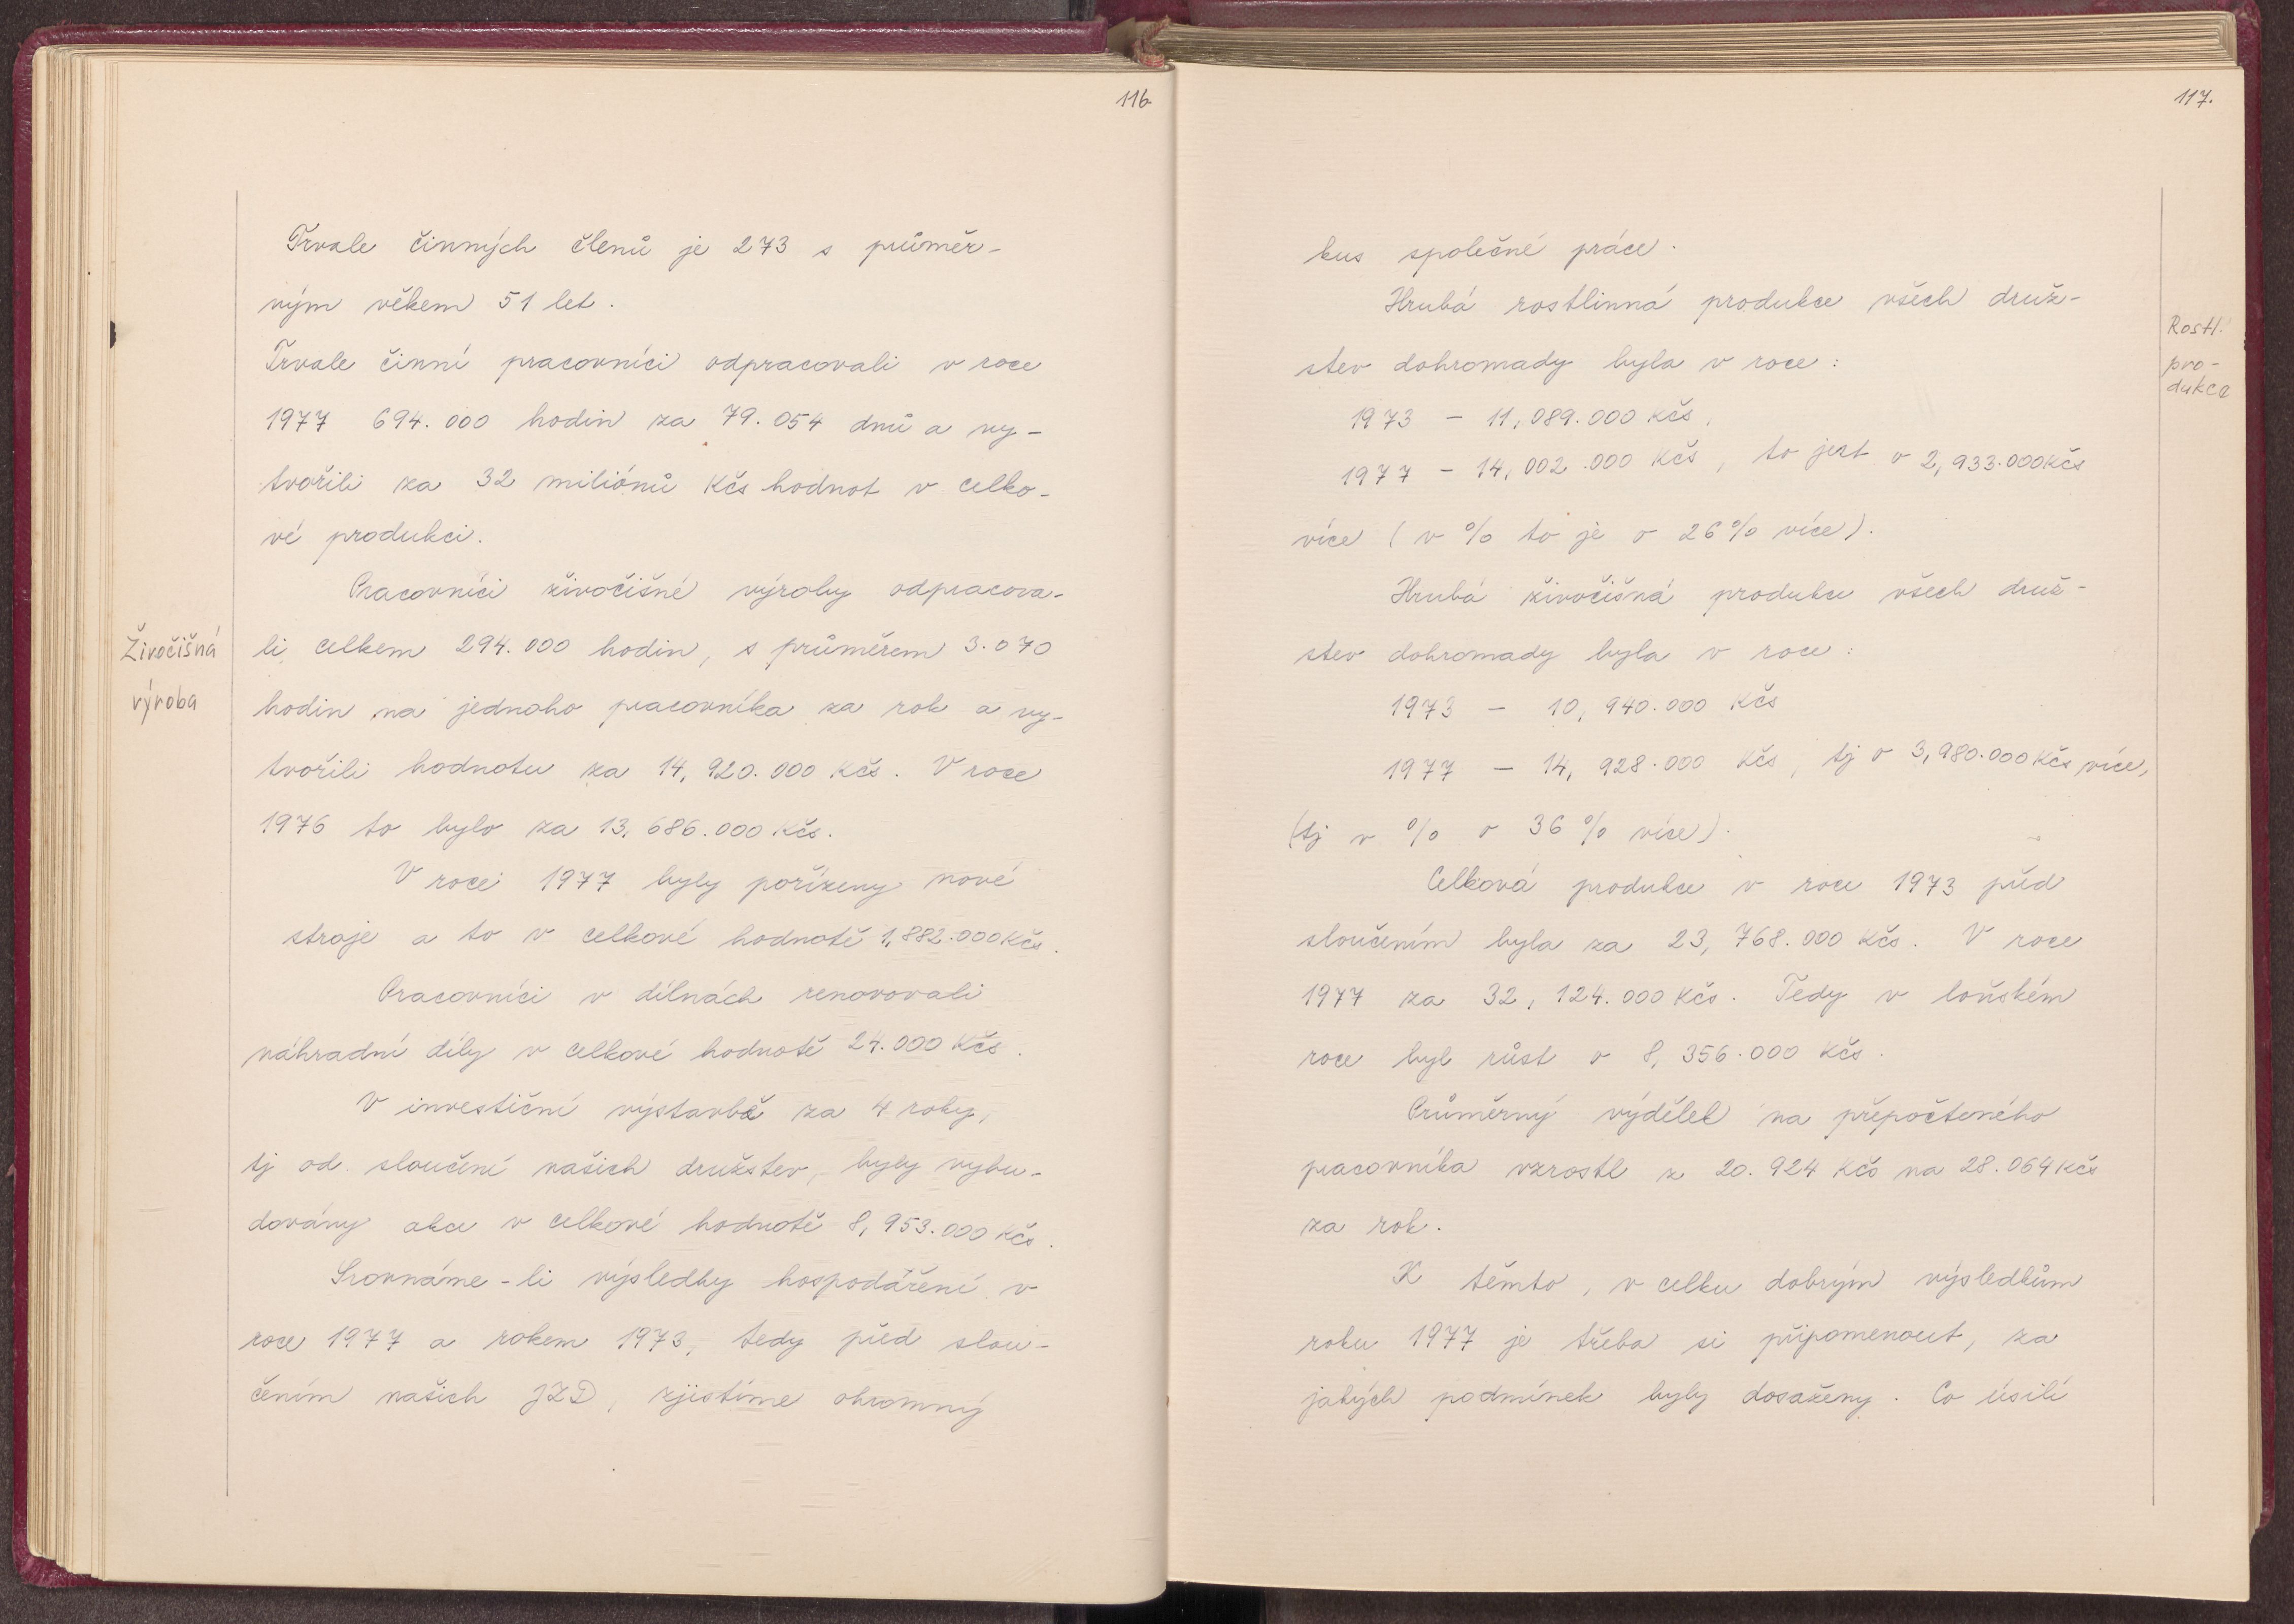 116.
Trvale činných členů je 273 s průměr-
ným věkem 51 let.
Trvale činní pracovníci odpracovali v roce
1977 694.000 hodin za 79.054 dnů a vy-
tvořili za 32 miliónů Kčs hodnot v celko-
vé produkci.
Pracovníci živočišné výroby odpracova-
Živočišná
výroba
li celkem 294.000 hodin, s průměrem 3.070
hodin na jednoho pracovníka za rok a vy-
tvořili hodnotu za 14,920.000 Kčs. V roce
1976 to bylo za 13,686.000 Kčs.
V roce 1977 byly pořízeny nové
stroje a to v celkové hodnotě 1,882.000 Kčs.
Pracovníci v dílnách renovovali
náhradní díly v celkové hodnotě 24.000 Kčs.
V investiční výstavbě za 4 roky,
tj od sloučení našich družstev, byly vybu-
dovány akce v celkové hodnotě 8,953.000 Kčs.
Srovnáme-li výsledky hospodaření v
roce 1977 a rokem 1973, tedy před slou-
čením našich JZD, zjistíme ohromný
117.
kus společné práce.
Hrubá rostlinná produkce všech druž-
Rostl.
pro-
dukce
stev dohromady byla v roce:
1973 - 11,089.000 Kčs,
1977 - 14,002.000 Kčs, to jest o 2,933.000 Kčs
více (v % to je o 26% více).
Hrubá živočišná produkce všech druž-
stev dohromady byla v roce:
1973 - 10,940.000 Kčs
1977 - 14,928.000 Kčs, tj o 3,980.000 Kčs více,
(tj v % o 36% více).
Celková produkce v roce 1973 před
sloučením byla za 23,768.000 Kčs. V roce
1977 za 32,124.000 Kčs. Tedy v loňském
roce byl růst o 8,356.000 Kčs.
Průměrný výdělek na přepočteného
pracovníka vzrostl z 20.924 Kčs na 28.064 Kčs
za rok.
K těmto, v celku dobrým výsledkům
roku 1977 je třeba si připomenout, za
jakých podmínek byly dosaženy. Co úsilí